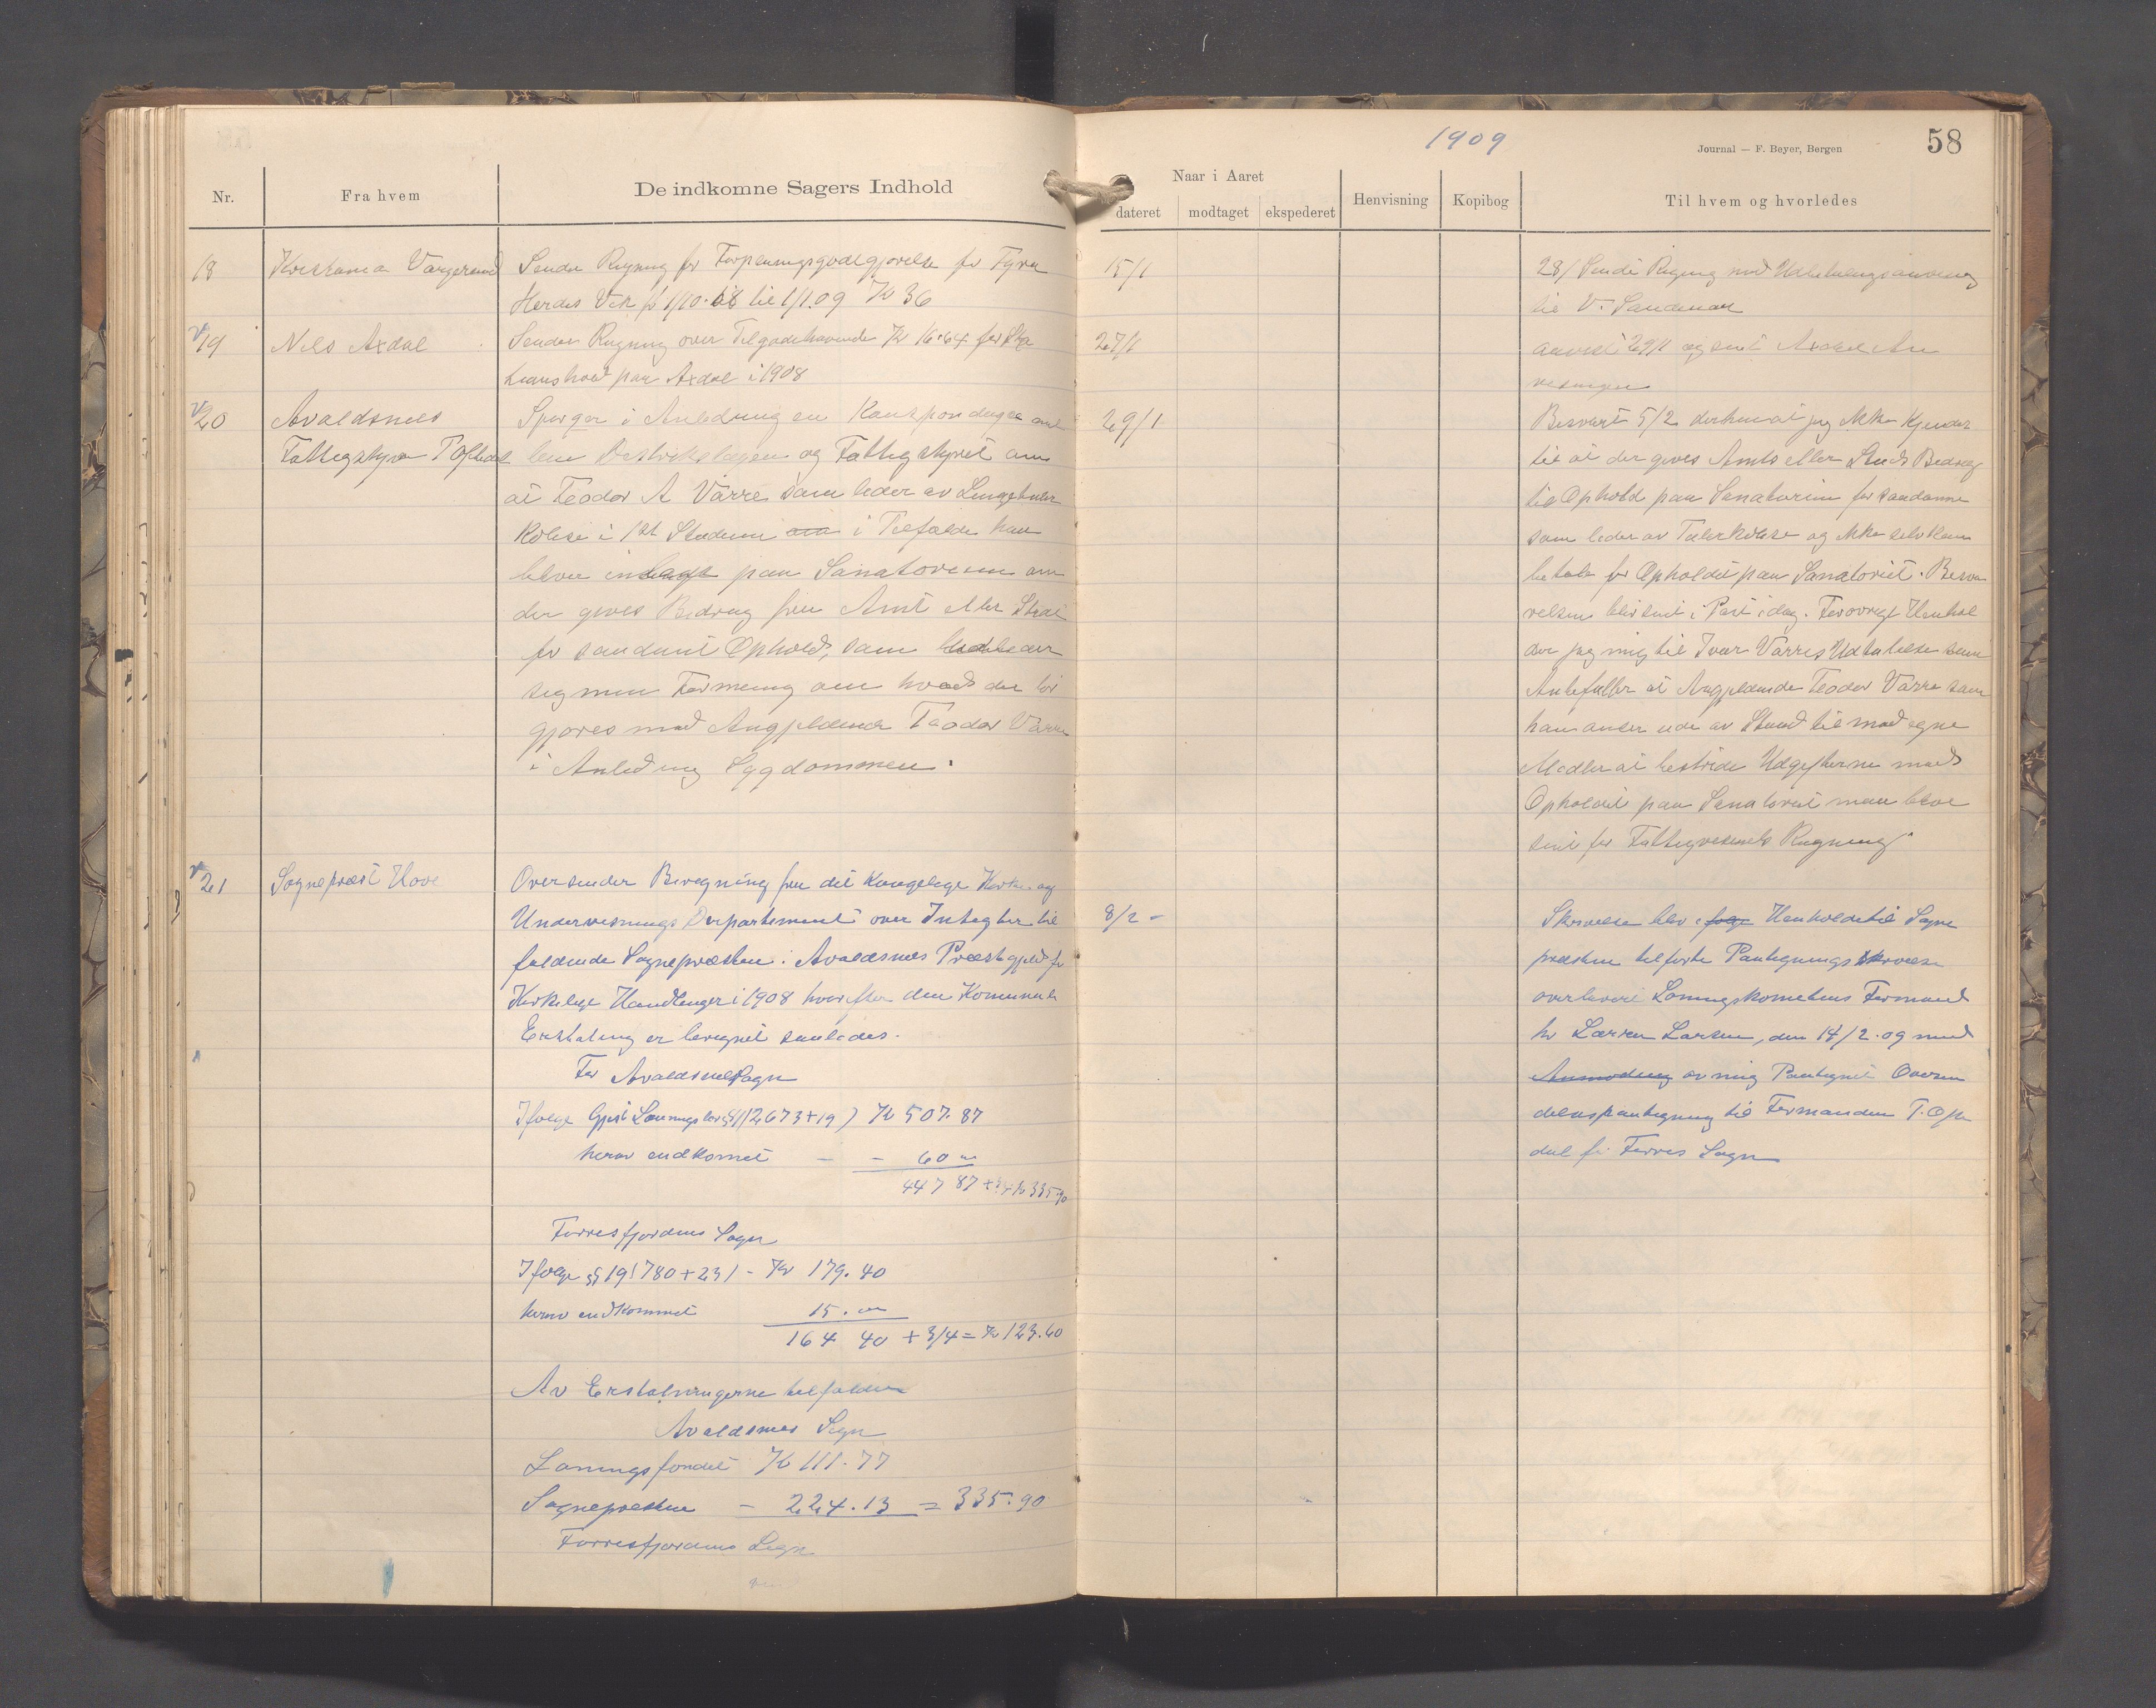 1909
Journal — F. Beyer, Bergen
58
Nr.
Fra hvem
De indkomne Sagers Indhold
Naar i Aaret
dateret
modtaget
ekspederet
Henvisning
Kopibog
Til hvem og hvorledes
18
Sender Regning for Forpleiningsgodtgjørelse for
til 1/1.09 Kr 36
15/1
28/1 Sendt Regning med
til V.
19
Nils Axdal
Sender Regning over Tilgodehavende Kr 16.64 for
paa Axdal i 1908
27/1
anvist 29/1 og sent Axdal An
visningen
20
Avaldsnes
Fattigstyre
Spørger i Anledning en
Distriktslægen og Fattigstyret om
at Teodor A Varre som lider av Lungetuber
kolose i 1st Stadium i Tilfælde han
blive indlagt paa Sanatorium om
der gives Bedrag fra Amt eller Stat
for saadant Ophold, som
sig min Formening om hvad der bør
gjøres med Angjeldende Teodor Varre
i Anledning Sygdommen.
29/1
Besvart 5/2 derhen at jeg ikke kjender
til at der gives Amts eller Stats Bedrag
til Ophold paa Sanatorium for saadanne
som lider av Tuberkolose og ikke selv kan
betale for Opholdet paa Sanatoriet. Besva
relsen blev sent i Post idag. Forøvrigt Henhol
der jeg mig til Ivar Varres Udtalelse som
Anbefaller at Angjeldende Teodor Varre som
han anser ude av Stand til med egne
Midler at bestride Udgifterne med
Opholdet paa Sanatoriet maa blive
sent for Fattigvesenets Regning
21
Sogneprest Hove
Oversender Beregning fra det Kongelige Kirke og
Undervisnings Departement over Indtegter til
faldende Sognepresten i Avaldsnes Prestegjeld for
Kirkelige Handlinger i 1908 hvorefter den Komunale
Erstatning er beregnet saaledes.
For Avaldsnes Sogn
Ifølge Gjest Lønningslov § 11 (2673+19) Kr 507.87
herav indkomet – – 60 "
447 87 + 3/4 Kr 335.90
Førresfjordens Sogn
Ifølge § 19 (780+231 – Kr 179.40
herav indkommet 15. "
164 40 + 3/4 = Kr 123.60
Av Erstatningerne tilfalder
Avaldsnes Sogn
Lønningsfondet Kr 111.77
Sognepresten – 224.13 = 335.90
Førresfjordens Sogn
8/2 –
Skrivelse blev i følge Henholdetil Sogne
presten tilførte Paategnings skrivelse
overlevert Lønningskomiteens Formand
hr Larsen, den 14/2.09 med
Anmodning av mig Paategnet Oversen
delsespaategning til Formanden T. Op
dal for Førres Sogn